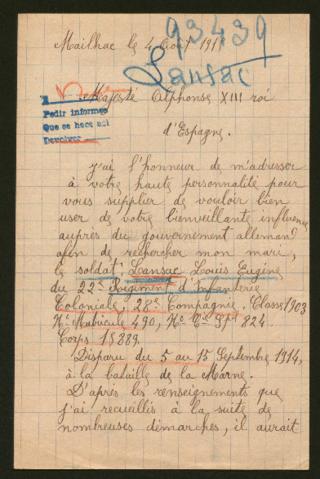 93439
Mailhac le 4 Août 191
Lansac
A Majesté Alphonse XIII roi
Pedir informes
Que se hace así
Devolver
d'Espagne.
j'ai l'honneur de m'adresser
à votre haute personnalité pour
vous supplier de vouloir bien
user de votre bienveillante influence
auprès du gouvernement allemand
afin de rechercher mon mari,
le soldat: Lansac Louis Eugène
du 22e Régiment d'Infanterie
Coloniale, 28e Compagnie. Classe 1903
No Matricule 490, No Cie Spl 824
Corps 15889.
Disparu du 5 au 15 Septembre 1914,
à la bataille de la Marne.
D'après les renseignements que
j'ai recueillis à la suite de
nombreuses démarches, il aurait